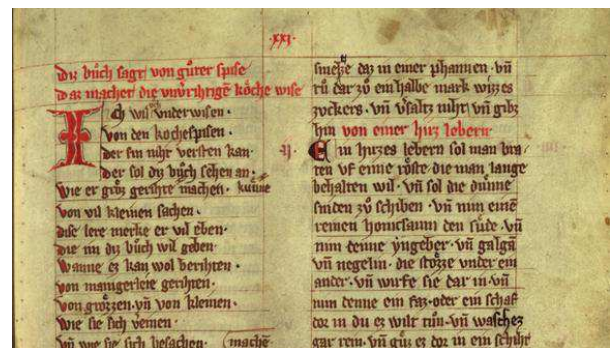 .xxi.
diz bůch sagt von gůter spise
daz machet die unvirihtigē köche wise
Ich wil vnderwisen.
von den kochespisen.
der sin niht versten kan.
der sol diz bůch sehen an.
wie er groz gerihte machen. kunne
von vil kleinen sachen.
dise lere merke er vil eben.
die im diz bůch wil geben.
wanne ez kan wol berihten.
von manigerleie gerihten.
von grözzen. vn̄ von kleinen.
wie sie sich vereinen.
vn̄ wie sie sich besachen. (machē
smeltze daz in einer phannen. vn̄
tů dar zů ein halbe mark wizzes
zvckers. vn̄ v̓saltz niht. vn̄ gibz
hin von einer hirz lebern
ij.
Ein hirzes lebern sol man bra-
ten vf eime röste. die man lange
behalten wil. vn̄ sol die dünne
sniden zů schiben. vn̄ nim einē
reinen honicsaum den süde. vn̄
nim denne yngeber. vn̄ galgā
vn̄ negelin. die stözze vnder ein
ander. vn̄ wirfe sie dar in. vn̄
nim denne ein faz. oder ein schaf
dor in du ez wilt tůn. vn̄ waschez
gar rein. vn̄ güz ez dor in ein schiht